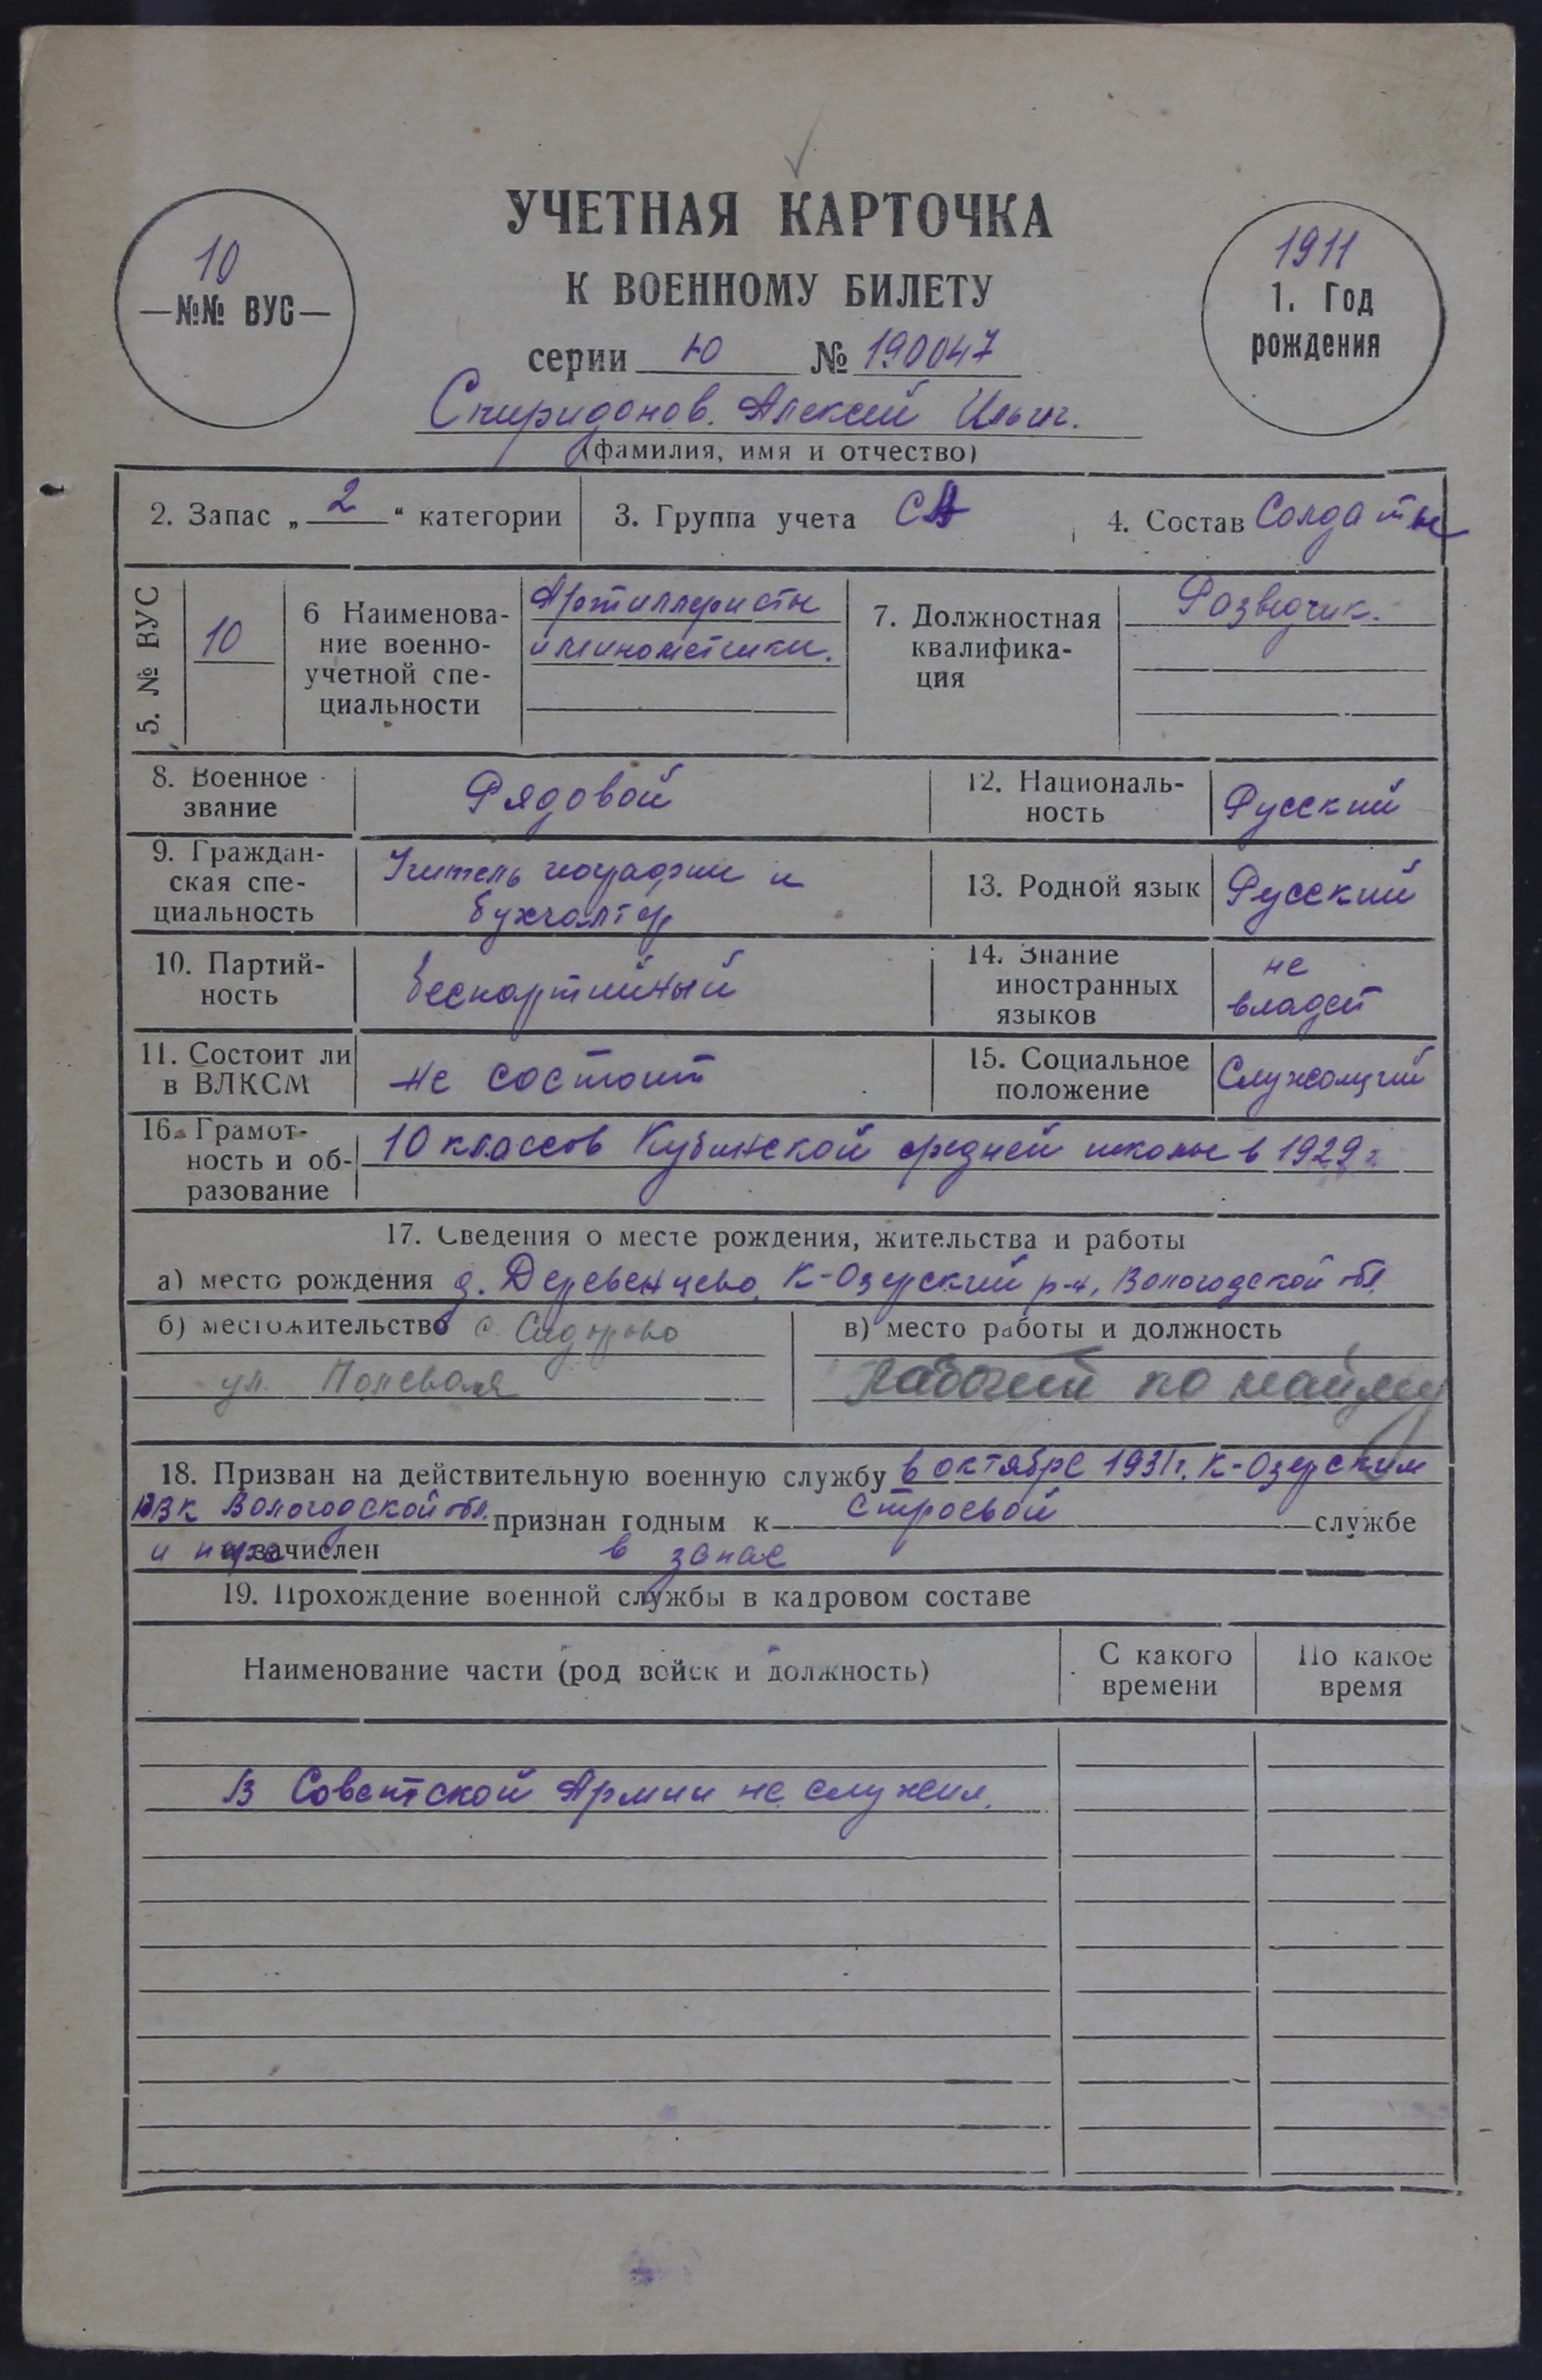 УЧЕТНАЯ КАРТОЧКА
К ВОЕННОМУ БИЛЕТУ
серии Ю № 190047
10
—№№ ВУС—
1911
1. Год
рождения
Спиридонов Алексей Ильич.
(фамилия, имя и отчество)
2. Запас „ 2 “ категории
3. Группа учета СА
4. Состав Солдаты
5. № ВУС
10
6 Наименова-
ние военно-
учетной спе-
циальности
Артиллеристы
и минометчики.
7. Должностная
квалифика-
ция
Разведчик.
8. Военное
звание
Рядовой
12. Националь-
ность
Русский
9. Граждан-
ская спе-
циальность
Учитель географии и
бухгалтер
13. Родной язык
Русский
10. Партий-
ность
беспартийный
14. Знание
иностранных
языков
не
владеет
11. Состоит ли
в ВЛКСМ
не состоит
15. Социальное
положение
Служащий
16. Грамот-
ность и об-
разование
10 классов Кубинской средней школы в 1929 г
17. Сведения о месте рождения, жительства и работы
а) место рождения д. Деревенцево, К-Озерский р-н, Вологодской обл.
б) местожительство с. Сидорово
ул. Полевая
в) место работы и должность
Рабочий по найму
18. Призван на действительную военную службу в октябре 1931г. К-Озерским
РВК Вологодской обл. признан годным к строевой службе
и зачислен в запас
19. Прохождение военной службы в кадровом составе
Наименование части (род войск и должность)
С какого
времени
По какое
время
В Советской Армии не служил.